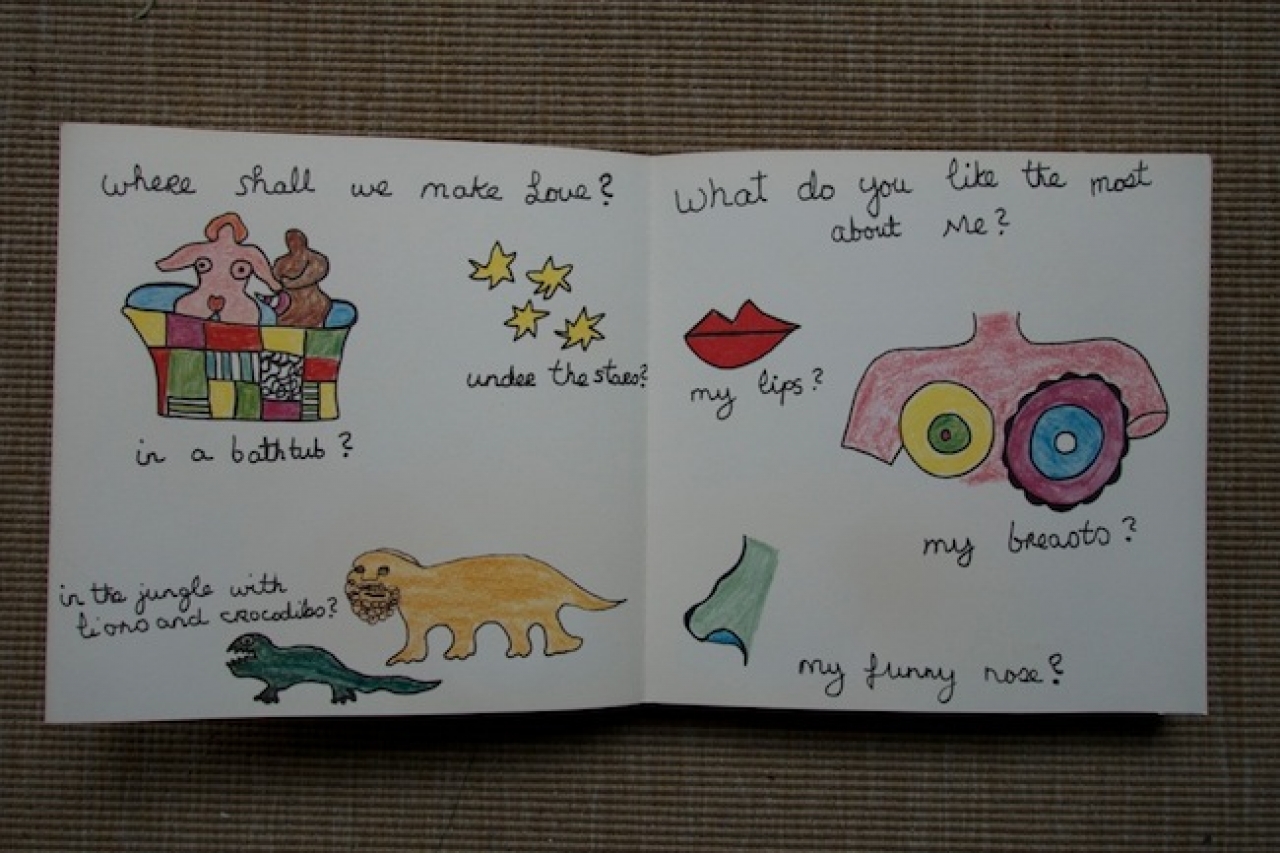 where shall we make Love?
in a bathtub?
under the stars?
in the jungle with
lions and crocodiles?
What do you like the most
about Me?
my lips?
my breasts?
my funny nose?